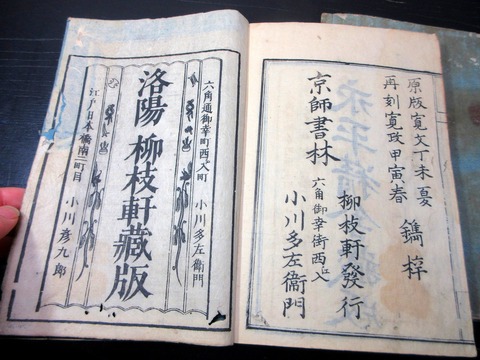 原版寛文丁未夏
再刻寛政甲寅春
鐫梓
柳枝軒發行
京師書林
六角御幸街西江入
小川多左衞門
六角通御幸町西入町
小川多左衞門
洛陽 柳枝軒藏版
江戸日本橋南二町目
小川彦九郎